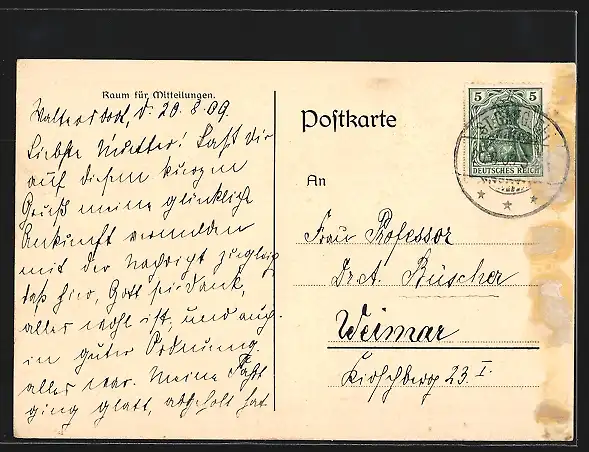 Raum für Mitteilungen.
Waltersdorf, d. 20.8.09.
Liebste Mutter! Laß dir
auf diesem kurzen
Gruß meine glückliche
Ankunft vermelden
mit der Nachricht zugleich
daß hier, Gott sei dank,
alles wohl ist, und auch
in guter Ordnung.
alles war. Meine Fahrt
ging glatt, abgeholt hat
Postkarte
5 5
DEUTSCHES REICH
An
Frau Professor
Dr. A. Büscher
Weimar
Kirschberg 23 I.